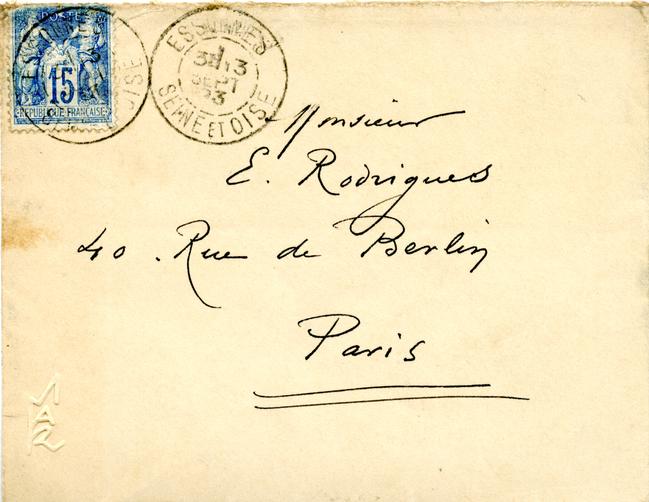 POSTES
15
REPUBLIQUE FRANÇAISE
ESSONNES
SEPT
SEINE ET OISE
Monsieur
E. Rodrigues
40. Rue de Berlin
Paris